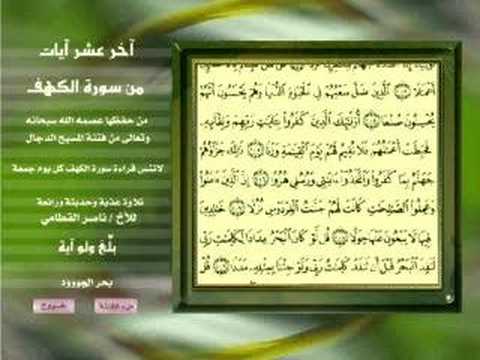 آخر عشر آيات
من سورة الكهف
من حفظها عصمه الله سبحانه
وتعالى من فتنة المسيح الدجال
لاتنس قراءة سورة الكهف كل يوم جمعة
تلاوة عذبة وحديثة ورائعة
للأخ / ناصر القطامي
بلّغ ولو آية
بحر الجوووود
خـــروج
أَعْمَٰلًا ٱلَّذِينَ ضَلَّ سَعْيُهُمْ فِى ٱلْحَيَوٰةِ ٱلدُّنْيَا وَهُمْ يَحْسَبُونَ أَنَّهُمْ
يُحْسِنُونَ صُنْعًا أُو۟لَٰٓئِكَ ٱلَّذِينَ كَفَرُوا۟ بِـَٔايَٰتِ رَبِّهِمْ وَلِقَآئِهِۦ
فَحَبِطَتْ أَعْمَٰلُهُمْ فَلَا نُقِيمُ لَهُمْ يَوْمَ ٱلْقِيَٰمَةِ وَزْنًا ذَٰلِكَ جَزَآؤُهُمْ
جَهَنَّمُ بِمَا كَفَرُوا۟ وَٱتَّخَذُوٓا۟ ءَايَٰتِى وَرُسُلِى هُزُوًا إِنَّ ٱلَّذِينَ ءَامَنُوا۟
وَعَمِلُوا۟ ٱلصَّٰلِحَٰتِ كَانَتْ لَهُمْ جَنَّٰتُ ٱلْفِرْدَوْسِ نُزُلًا خَٰلِدِينَ
فِيهَا لَا يَبْغُونَ عَنْهَا حِوَلًا قُل لَّوْ كَانَ ٱلْبَحْرُ مِدَادًا لِّكَلِمَٰتِ رَبِّى
لَنَفِدَ ٱلْبَحْرُ قَبْلَ أَن تَنفَدَ كَلِمَٰتُ رَبِّى وَلَوْ جِئْنَا بِمِثْلِهِۦ مَدَدًا قُلْ